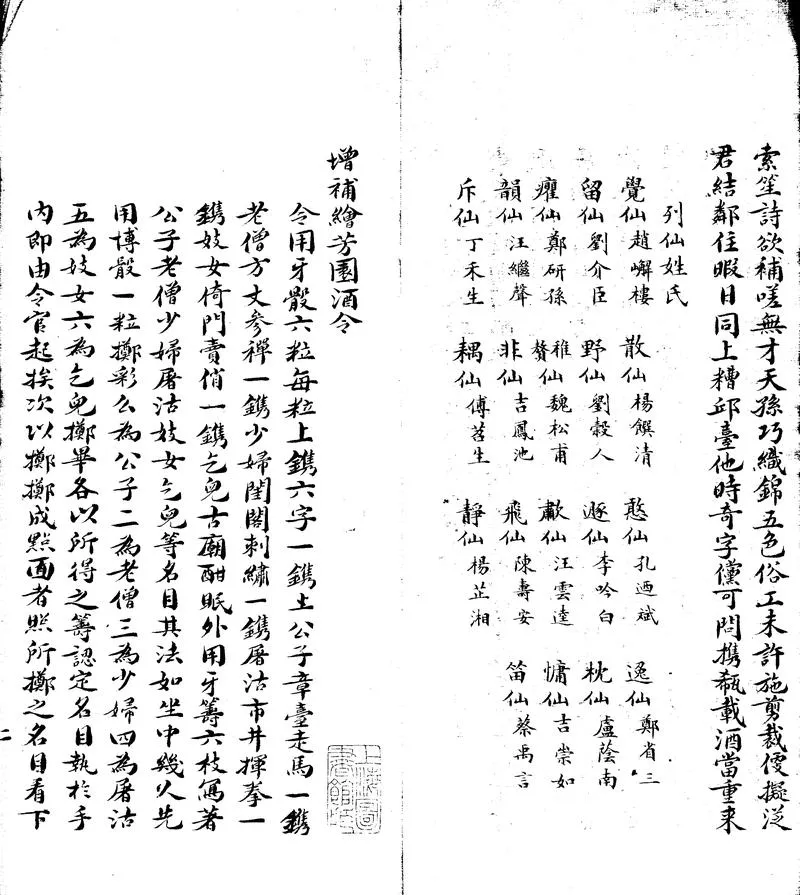 索笙詩欲補嗟無才天孫巧織錦五色俗工未許施剪裁僾擬泛
君結鄰住暇日同上糟邱臺他時奇字儻可問攜瓻載酒當重來
列仙姓氏
覺仙趙嶰樓 散仙楊饌清 憨仙孔迺斌 逸仙鄭省三
留仙劉介臣 野仙劉穀人 遯仙李吟白 枕仙盧蔭南
癯仙鄭研孫 贅仙魏松甫 歗仙汪雲逵 慵仙吉崇如
韻仙汪繼聲 非仙吉鳳池 飛仙陳壽安 笛仙蔡禹言
斥仙丁禾生 耦仙傅苕生 靜仙楊芷湘
增補繪芳園酒令
令用牙骰六粒每粒上鐫六字一鐫土公子章臺走馬一鐫
老僧方丈參禪一鐫少婦閨閣刺繡一鐫屠沽市井揮拳一
鐫妓女倚門賣俏一鐫乞兒古廟酣眠外用牙籌六枝寫著
公子老僧少婦屠沽妓女乞兒等名目其法如坐中幾人先
用博骰一粒擲彩么為公子二為老僧三為少婦四為屠沽
五為妓女六為乞兒擲畢各以所得之籌認定名目執於手
內即由令官起挨次以擲擲成點面者照所擲之名目看下
二
上海圖
書館藏